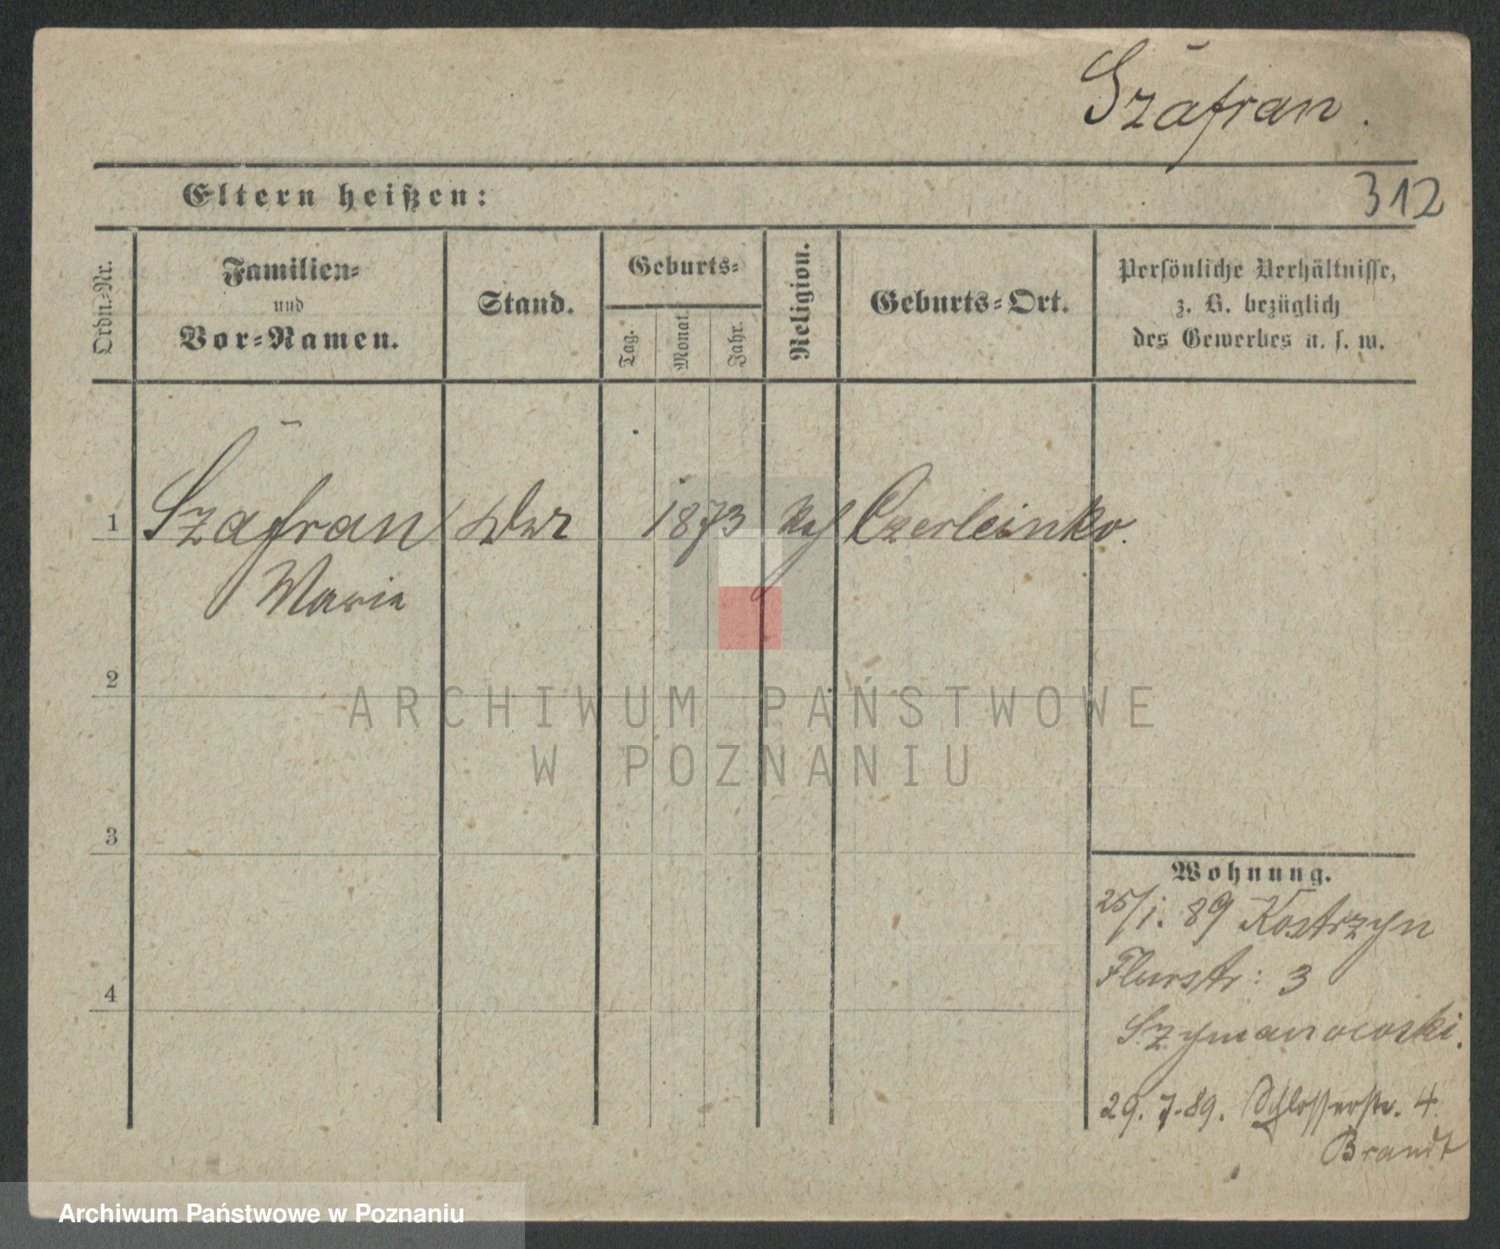 Szafran.
Eltern heißen:
312
Ordn.-Nr.
Familien-
und
Vor-Namen.
Stand.
Geburts-
Tag.
Monat.
Jahr.
Religion.
Geburts-Ort.
Persönliche Verhältnisse,
z. B. bezüglich
des Gewerbes u. s. w.
1 Szafran 1873 Czerleinko.
Marie
2
3
4
ARCHIWUM PAŃSTWOWE
W POZNANIU
Wohnung.
25/1. 89 Kostrzyn
Flurstr: 3
Szymanowski.
29. 7. 89. Schlosserstr. 4
Brandt
Archiwum Państwowe w Poznaniu